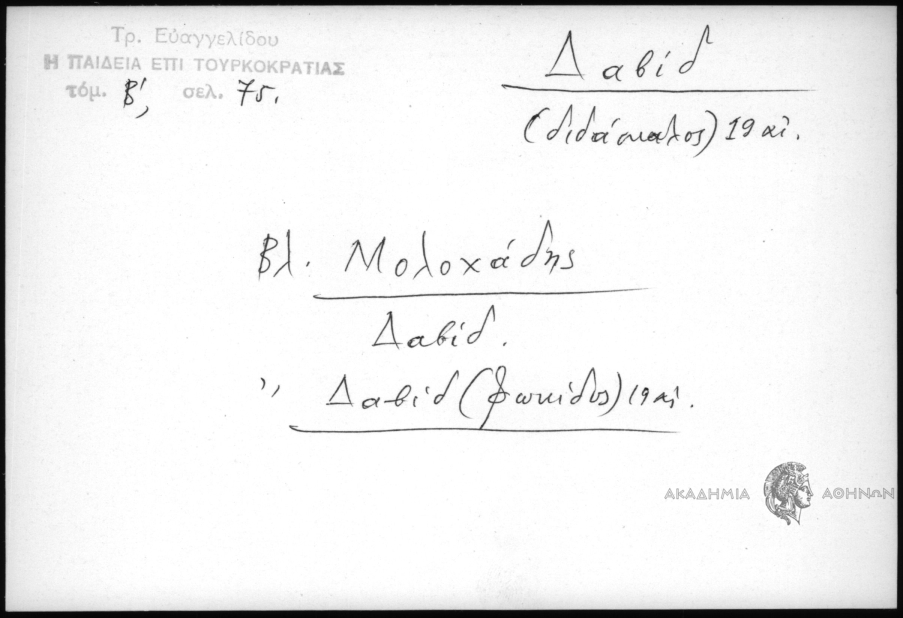 Τρ. Εὐαγγελίδου
Η ΠΑΙΔΕΙΑ ΕΠΙ ΤΟΥΡΚΟΚΡΑΤΙΑΣ
τόμ. Β', σελ. 75.
Δαβίδ
(διδάσκαλος) 19 αἰ.
Βλ. Μολοχάδης
Δαβίδ.
'' Δαβίδ (Φωκίδος) 19 αἰ.
ΑΚΑΔΗΜΙΑ ΑΘΗΝΩΝ